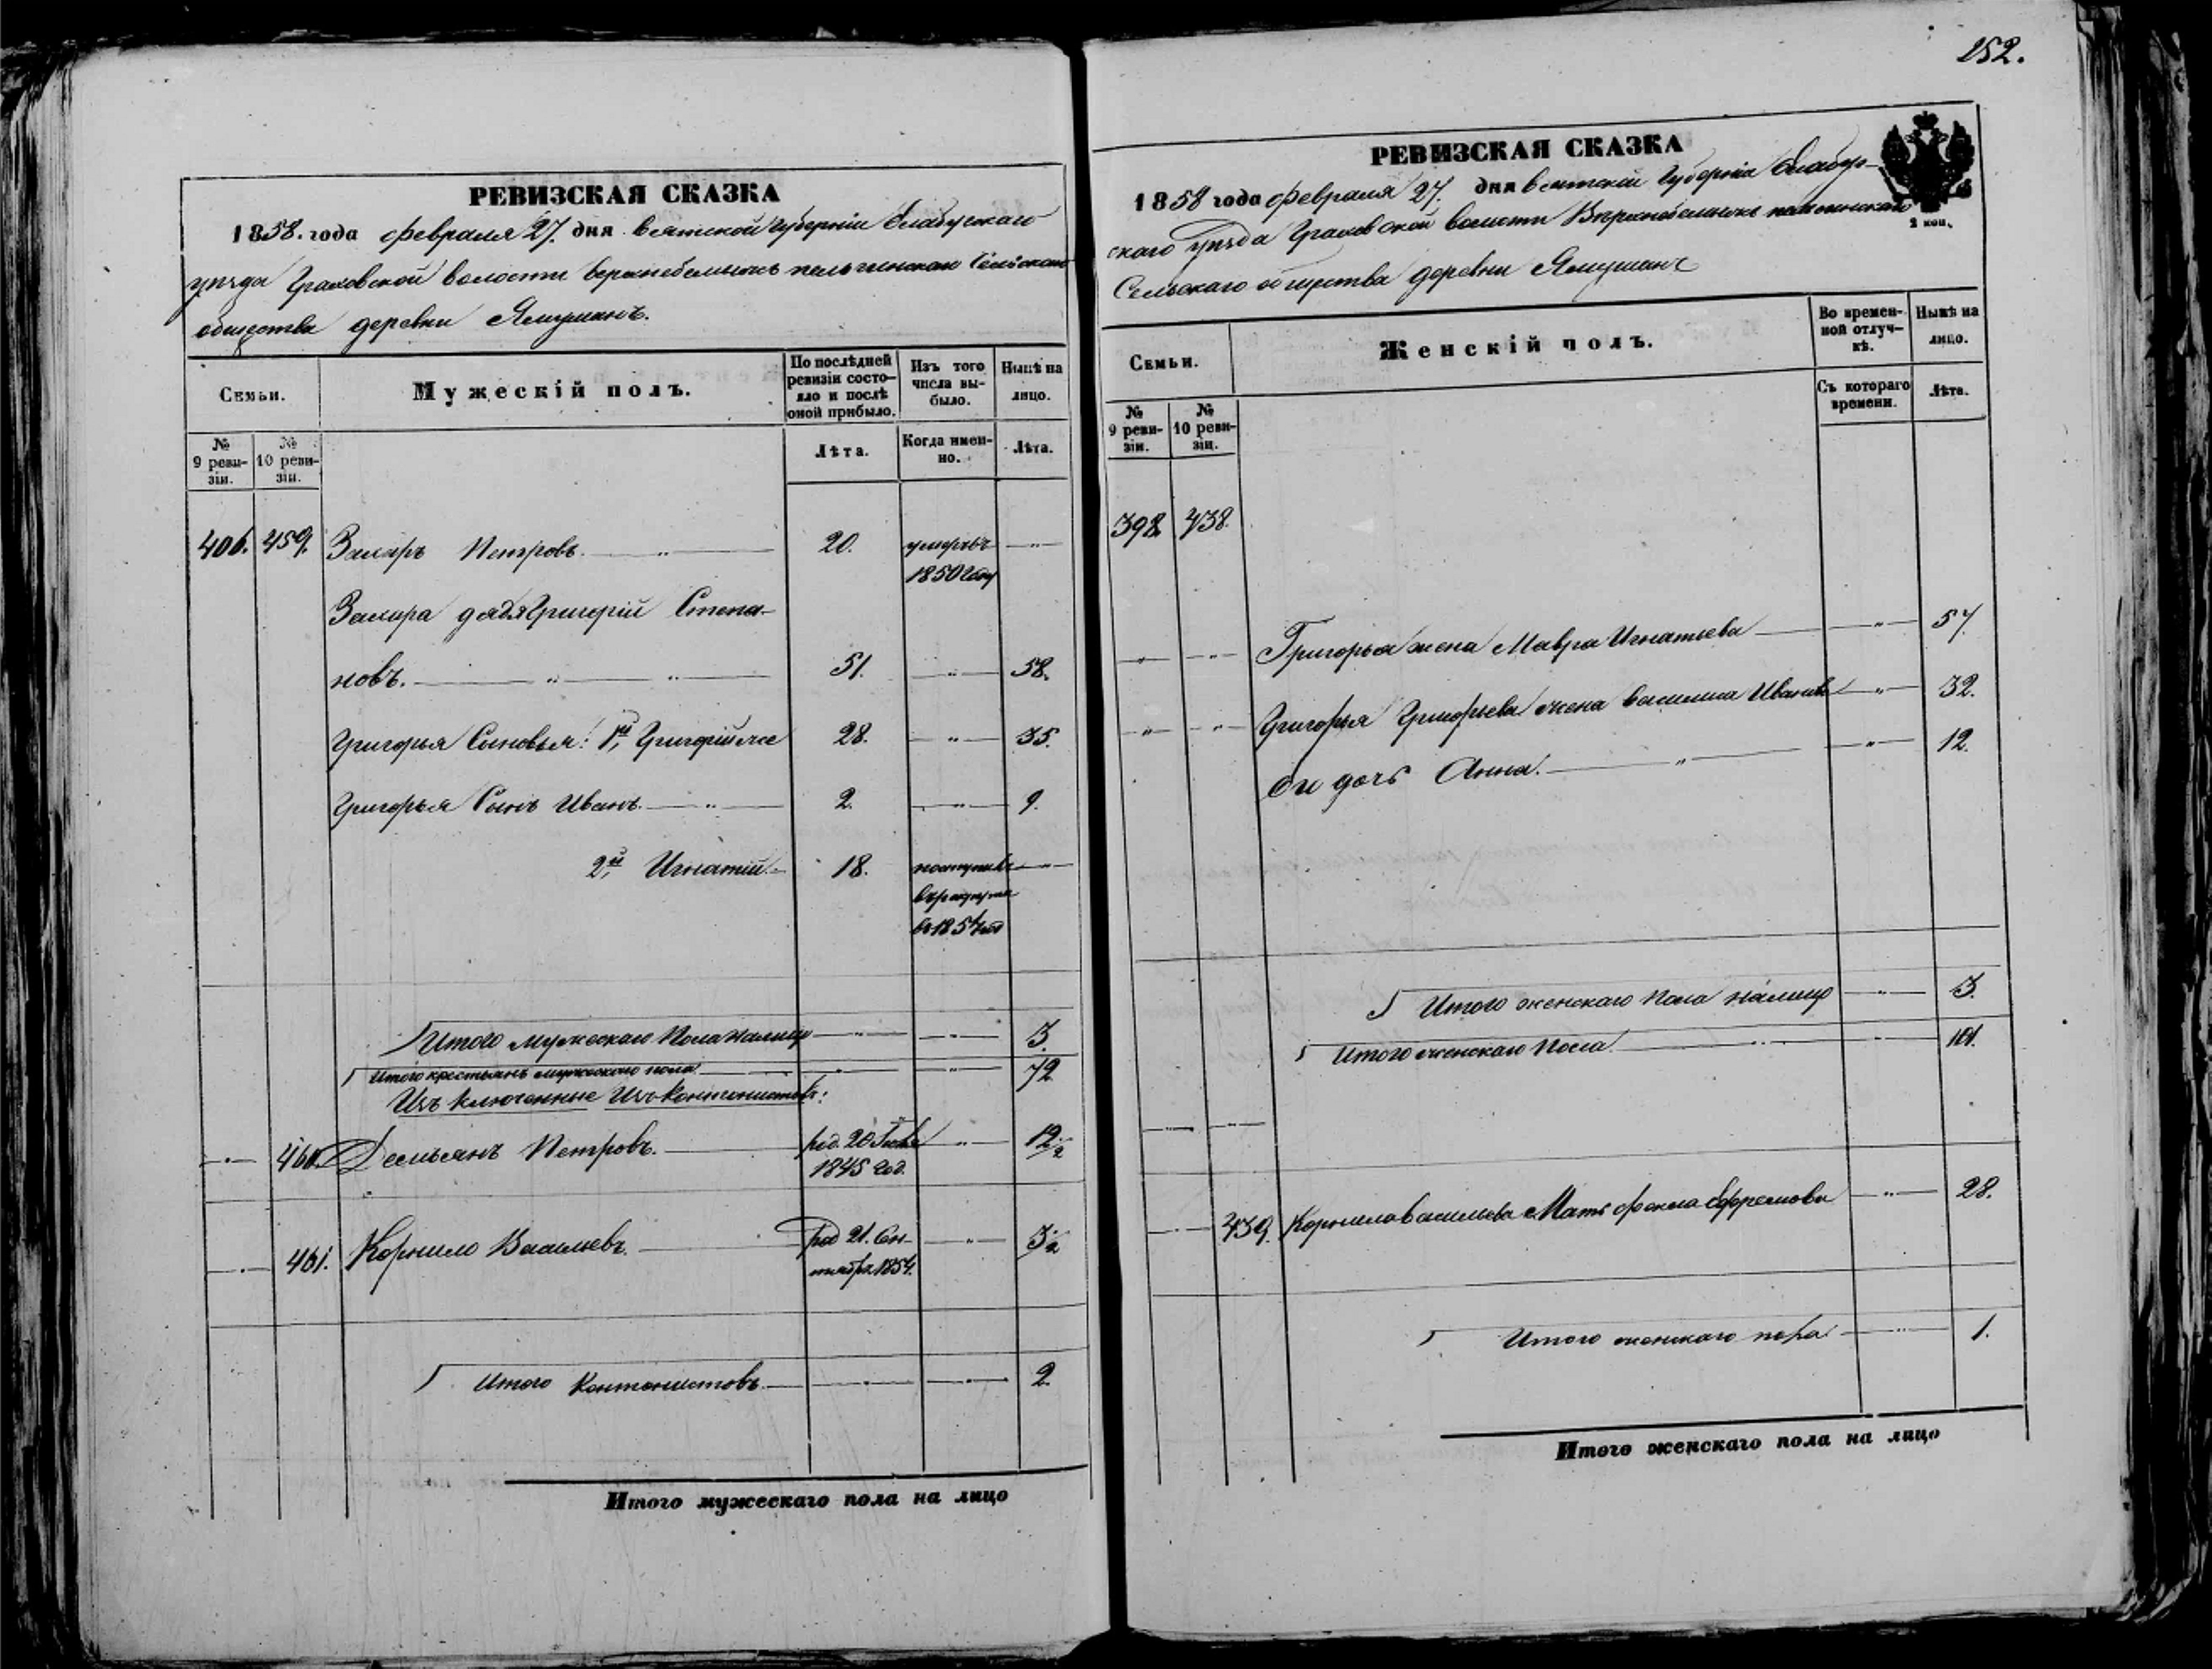 РЕВИЗСКАЯ СКАЗКА
1858. года февраля 27. дня Вятской губерніи Елабускаго
уѣзда Граховской волости Сельскаго
общества деревни
Семьи.
Мужескій полъ.
По послѣдней ревизіи состояло и послѣ оной прибыло.
Изъ того числа выбыло.
Нынѣ на лицо.
№ 9 ревизіи.
№ 10 ревизіи.
Лѣта.
Когда именно.
Лѣта.
406. 459. Захаръ Петровъ. 20. умеръ въ
1850 году
Захара дядя Григорій Степа-
новъ. 51. 58.
Григорья Сыновья: 1й, Григорій же 28. 35.
Григорья Сынъ Иванъ. 2. 9.
2й, Игнатій 18. поступилъ
въ рекруты
въ 1854 год
Итого мужескаго пола налицо 3.
Итого крестьянъ мужескаго пола 72
Изъ кантонистовъ:
460. Демьянъ Петровъ. род. 20
1845 год. 12 1/2
461. Корнило Васильевъ. род 21. Сен-
тября 1854. 3 1/2
Итого Кантонистовъ 2
Итого мужескаго пола на лицо
252.
РЕВИЗСКАЯ СКАЗКА
1858 года февраля 27. дня Вятской Губерніи Елабуж-
скаго уѣзда Граховской волости
Сельскаго общества деревни
2 коп.
Семьи.
Женскій полъ.
Во временной отлучкѣ.
Нынѣ на лицо.
№ 9 ревизіи.
№ 10 ревизіи.
Съ котораго времени.
Лѣта.
392 438.
Григорья жена Мавра Игнатьева 57.
Григорья Григорьева жена Василиса Иванова 32.
Ея дочь Анна. 12.
Итого женскаго пола налицо 3.
Итого женскаго пола 101.
439. Корнила Васильева Мать Фекла Ефремова 28.
Итого женскаго пола 1.
Итого женскаго пола на лицо